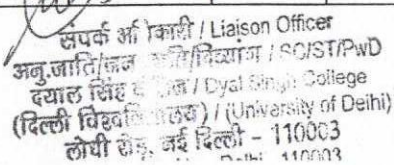 संपर्क / Liaison Officer
अनु.जाति/जन /दिव्यांग / SC/ST/PwD
दयाल सिंह / Dyal Singh College
(दिल्ली / (University of Delhi)
लोधी रोड़, नई दिल्ली - 110003
110003